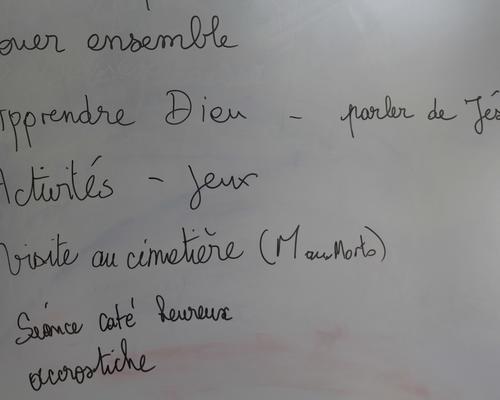 ouer ensemble
Apprendre Dieu - parler de Jés
Activités - Jeux
Visite au cimetière (M aux Morts)
Séance caté heureux
accrostiche